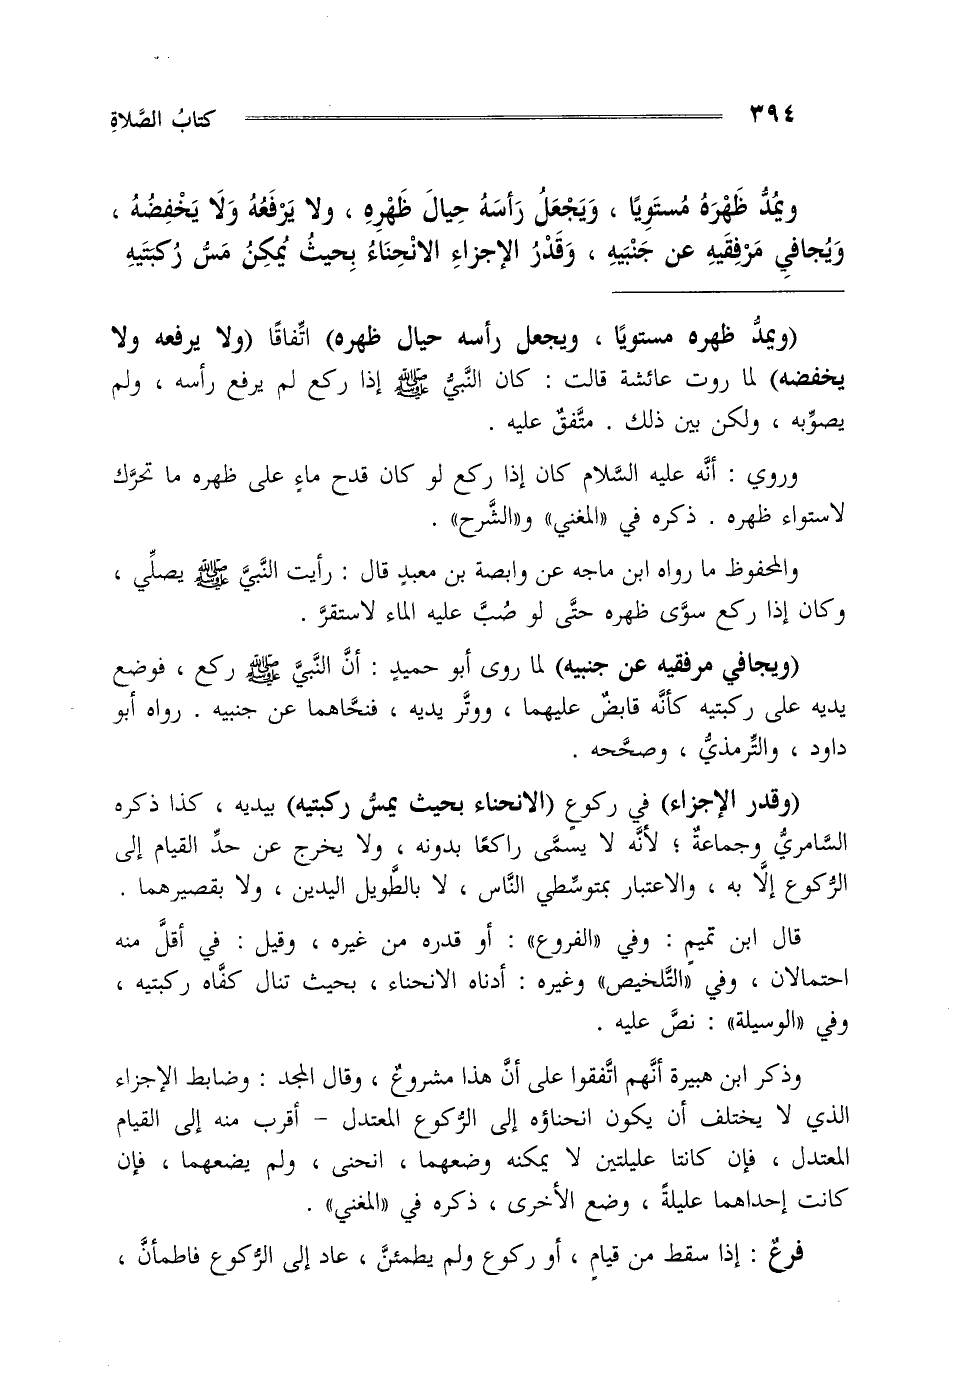 ٣٩٤ كتابُ الصَّلاةِ
ويمُدُّ ظَهْرَهُ مُستَوِيًا ، وَيَجْعَلُ رَأسَهُ حِيالَ ظَهْرِهِ ، ولا يَرْفَعُهُ وَلَا يَخْفِضُهُ ،
وَيُجافي مَرْفِقَيهِ عن جَنْبَيهِ ، وَقَدْرُ الإجزاءِ الانْحِناءُ بِحيثُ يُمكِنُ مَسُّ رُكبَتَيهِ
(ويمدُّ ظهره مستويًا ، ويجعل رأسه حيال ظهره) اتِّفاقًا (ولا يرفعه ولا
يخفضه) لما روت عائشة قالت : كان النَّبيُّ ﷺ إذا ركع لم يرفع رأسه ، ولم
يصوِّبه ، ولكن بين ذلك . متَّفقٌ عليه .
وروي : أنَّه عليه السَّلام كان إذا ركع لو كان قدح ماءٍ على ظهره ما تحرَّك
لاستواء ظهره . ذكره في «المغني» و«الشَّرح» .
والمحفوظ ما رواه ابن ماجه عن وابصة بن معبدٍ قال : رأيت النَّبيَّ ﷺ يصلِّي ،
وكان إذا ركع سوَّى ظهره حتَّى لو صُبَّ عليه الماء لاستقرَّ .
(ويجافي مرفقيه عن جنبيه) لما روى أبو حميدٍ : أنَّ النَّبيَّ ﷺ ركع ، فوضع
يديه على ركبتيه كأنَّه قابضٌ عليهما ، ووتَّر يديه ، فنحَّاهما عن جنبيه . رواه أبو
داود ، والتِّرمذيُّ ، وصحَّحه .
(وقدر الإجزاء) في ركوعٍ (الانحناء بحيث يمسُّ ركبتيه) بيديه ، كذا ذكره
السَّامريُّ وجماعةٌ ؛ لأنَّه لا يسمَّى راكعًا بدونه ، ولا يخرج عن حدِّ القيام إلى
الرُّكوع إلَّا به ، والاعتبار بمتوسِّطي النَّاس ، لا بالطَّويل اليدين ، ولا بقصيرهما .
قال ابن تميمٍ : وفي «الفروع» : أو قدره من غيره ، وقيل : في أقلَّ منه
احتمالان ، وفي «التَّلخيص» وغيره : أدناه الانحناء ، بحيث تنال كفَّاه ركبتيه ،
وفي «الوسيلة» : نصَّ عليه .
وذكر ابن هبيرة أنَّهم اتَّفقوا على أنَّ هذا مشروعٌ ، وقال المجد : وضابط الإجزاء
الذي لا يختلف أن يكون انحناؤه إلى الرُّكوع المعتدل - أقرب منه إلى القيام
المعتدل ، فإن كانتا عليلتين لا يمكنه وضعهما ، انحنى ، ولم يضعهما ، فإن
كانت إحداهما عليلةً ، وضع الأخرى ، ذكره في «المغني» .
فرعٌ : إذا سقط من قيامٍ ، أو ركوع ولم يطمئنَّ ، عاد إلى الرُّكوع فاطمأنَّ ،